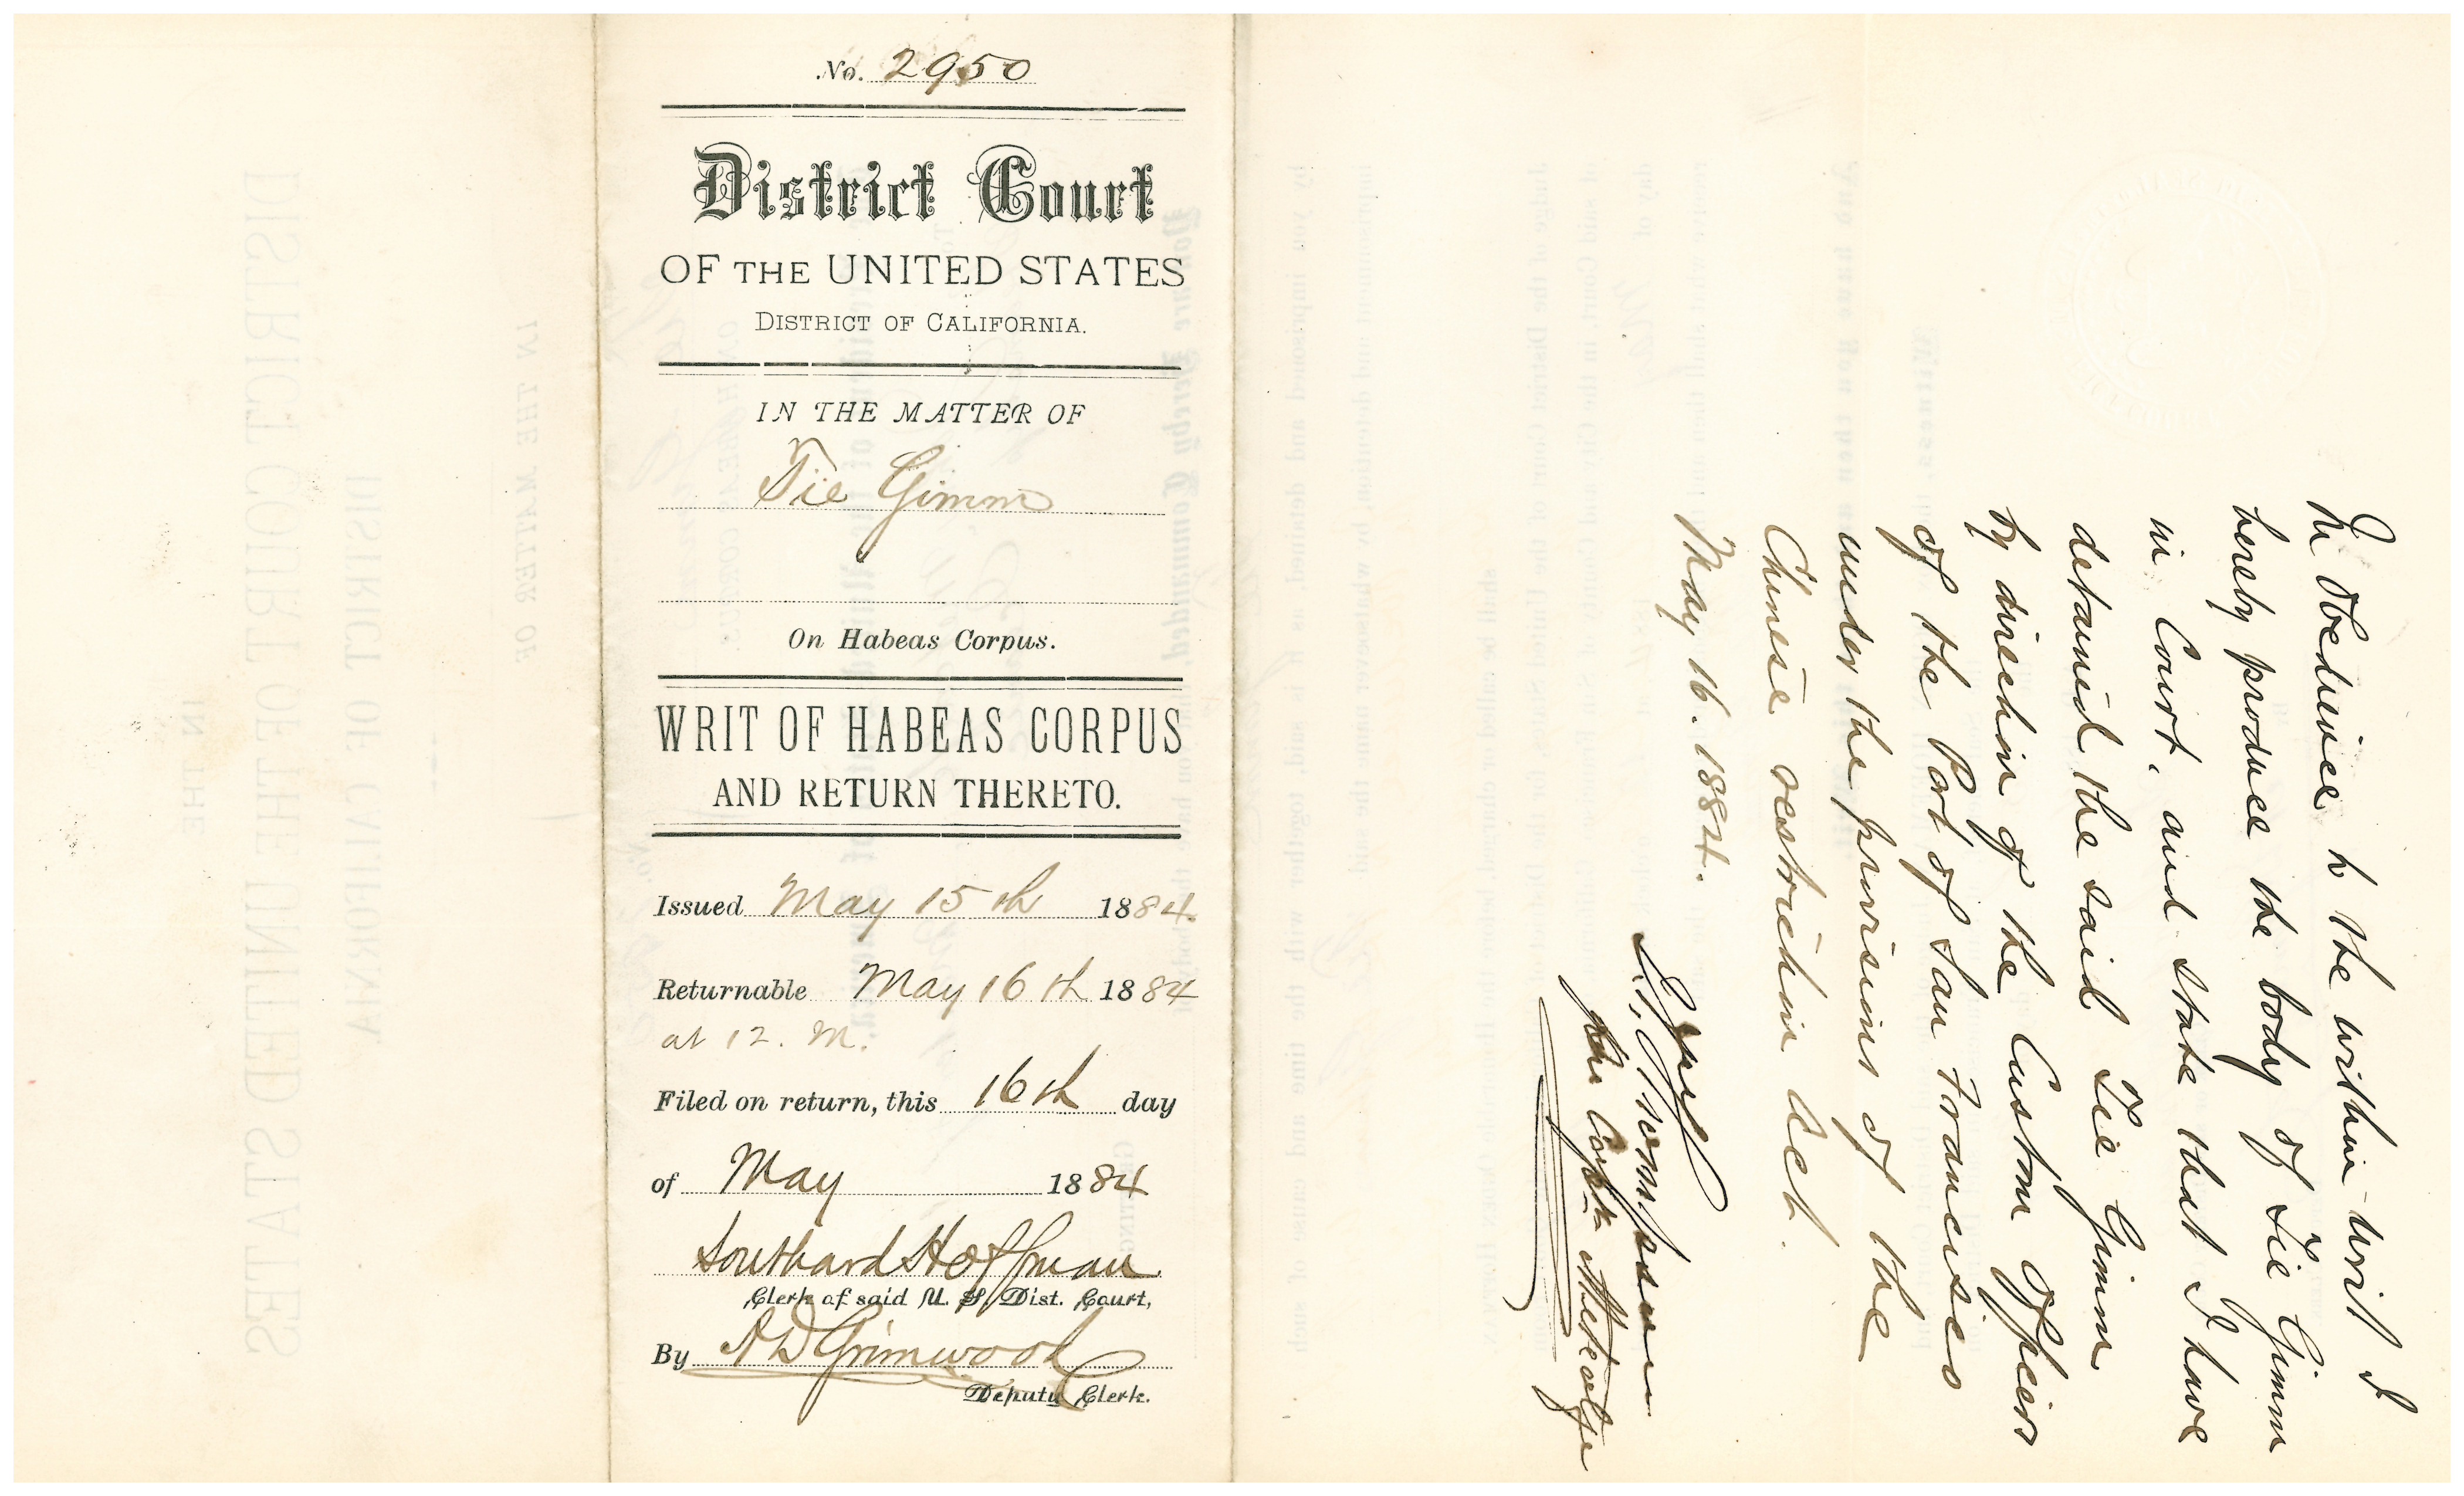 No. 2950
District Court
OF THE UNITED STATES
DISTRICT OF CALIFORNIA.
IN THE MATTER OF
Tie Gimm
On Habeas Corpus.
WRIT OF HABEAS CORPUS
AND RETURN THERETO.
Issued May 15th 1884.
Returnable May 16th 1884
at 12. M.
Filed on return, this 16th day
of May 1884
Southard Hoffman
Clerk of said U. S. Dist. Court,
By A D Grimwood
Deputy Clerk.
In Obedience to the within writ I
hereby produce the body of Tie Gimm
in Court, and state that I have
detained the said Tie Gimm
by direction of the Custom Officers
of the Port of San Francisco
under the provisions of the
Chinese restriction Act.
May 16. 1884.
Thompson
for Capt Metcalfe
DISTRICT COURT OF THE UNITED STATES
IN THE
DISTRICT OF CALIFORNIA
IN THE MATTER OF